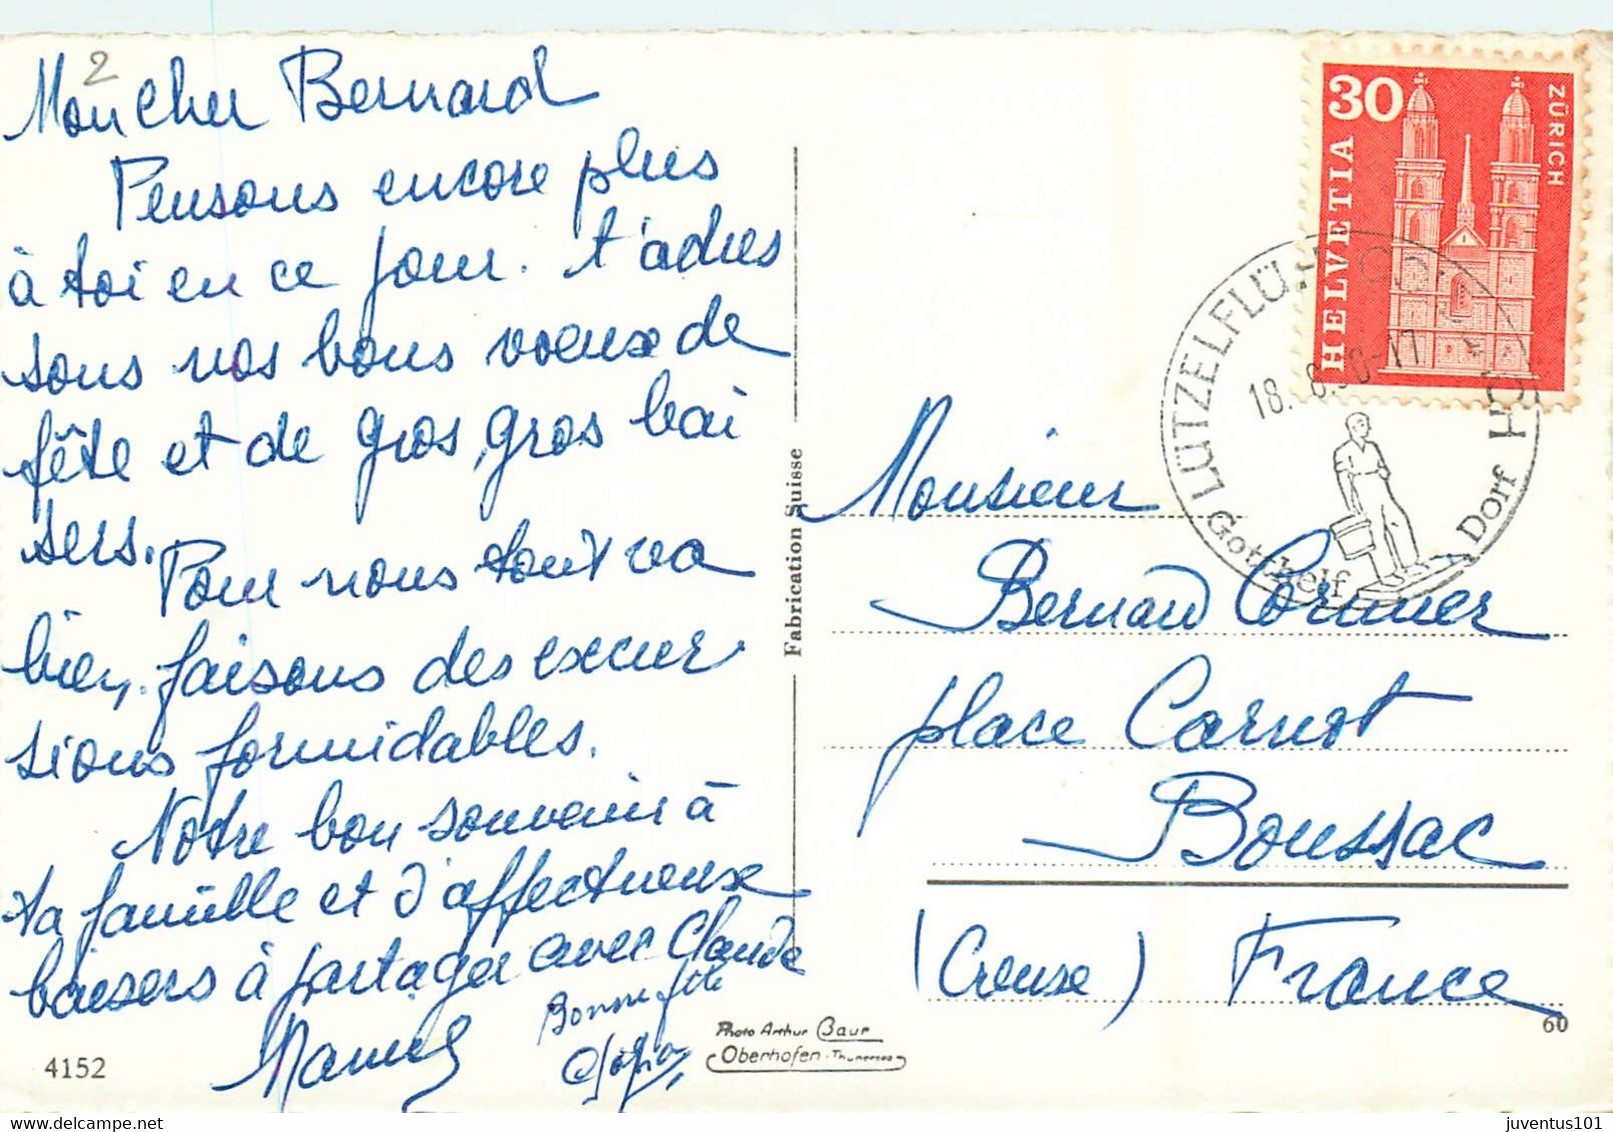 2
Mon Cher Bernard
Pensons encore plus
à toi en ce jour. t'adres
sons nos bons voeux de
fête et de gros, gros bai
sers.
Pour nous tout va
bien, faisons des excur
sions formidables.
Notre bon souvenir à
ta famille et d'affectueux
baisers à partager avec Claude
Bonne fête
4152
Fabrication Suisse
Photo Arthur Baur
Oberhofen - Thunersee
30
HELVETIA
ZÜRICH
LÜTZELFLÜH
18. 8.
-17
Gotthelf
Dorf
Monsieur
Bernard Cormier
place Carnot
Boussac
(Creuse) France
60
www.delcampe.net
juventus101